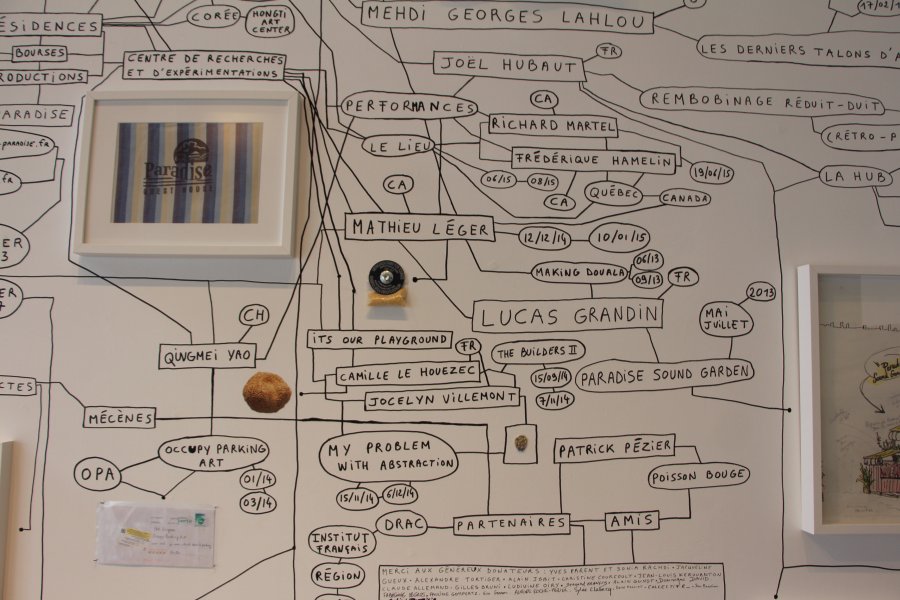 CORÉE
HONGTI
ART
CENTER
MEHDI GEORGES LAHLOU
17/02/1
ÉSIDENCES
BOURSES
RODUCTIONS
PARADISE
CENTRE DE RECHERCHES
ET D'EXPÉRIMENTATIONS
LES DERNIERS TALONS D'A
JOËL HUBAUT
FR
PERFORMANCES
CA
REMBOBINAGE RÉDUIT-DUIT
RICHARD MARTEL
(RÉTRO-P
LE LIEU
FRÉDÉRIQUE HAMELIN
19/06/15
LA HUB
06/15
08/15
CA
QUÉBEC
CANADA
CA
-PARADISE.FR
.FR
Paradise
GUEST HOUSE
MATHIEU LÉGER
12/12/14
10/01/15
MAKING DOUALA
06/13
09/13
FR
LUCAS GRANDIN
MAI
JUILLET
2013
CH
QINGMEI YAO
IT'S OUR PLAYGROUND
FR
THE BUILDERS II
CAMILLE LE HOUEZEC
15/09/14
7/11/14
PARADISE SOUND GARDEN
JOCELYN VILLEMONT
CTES
MÉCÈNES
OCCUPY PARKING
ART
OPA
01/14
03/14
MY PROBLEM
WITH ABSTRACTION
15/11/14
6/12/14
PATRICK PÉZIER
POISSON BOUGE
DRAC
PARTENAIRES
AMIS
INSTITUT
FRANÇAIS
RÉGION
MERCI AUX GÉNÉREUX DONATEURS : YVES PARENT ET SONIA RACHDI • JACQUELINE
GUEUX • ALEXANDRE TORTIGER • ALAIN JABIT • CHRISTINE COURCOULT • JEAN-LOUIS KEROUANTON
CLAUDE ALLEMAND • GILLES BRUNI • LUDIVINE DIRY